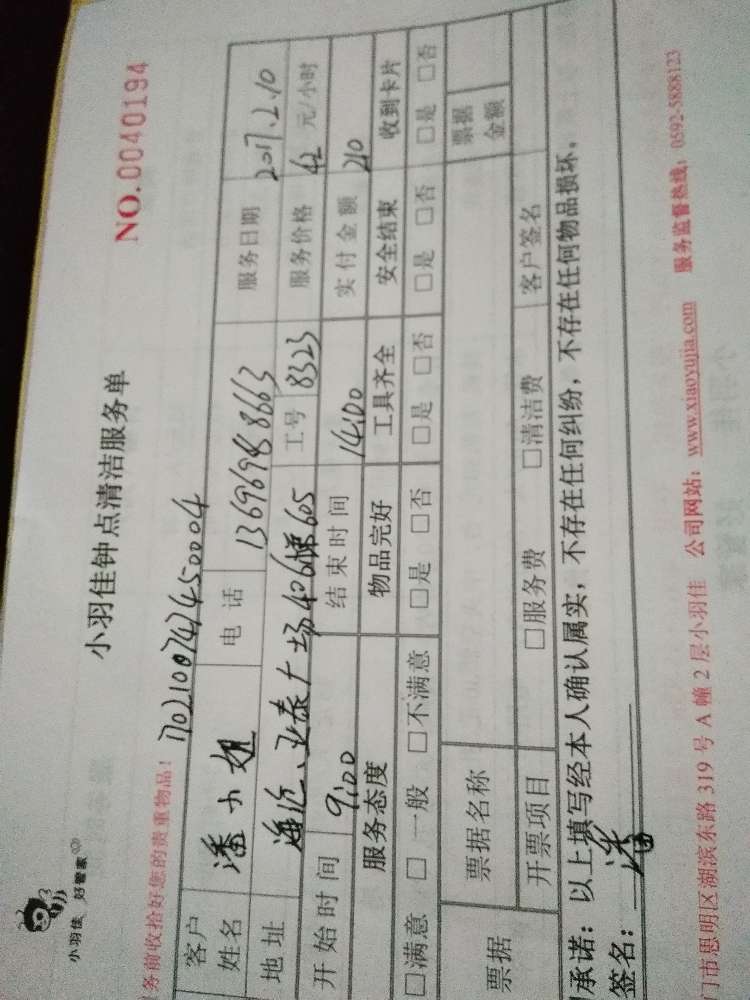 小羽佳 好管家
小羽佳钟点清洁服务单
NO.0040194
务前收拾好您的贵重物品!
客户姓名 潘小姐 电话 13696988663 服务日期 2017.2.10
地址 406梯605 工号 8323 服务价格 42 元/小时
开始时间 9:00 结束时间 14:00 实付金额 210
服务态度 物品完好 工具齐全 安全结束 收到卡片
□满意 □一般 □不满意 □是 □否 □是 □否 □是 □否 □是 □否
票据 票据名称 票据金额
开票项目 □服务费 □清洁费 客户签名
承诺:以上填写经本人确认属实,不存在任何纠纷,不存在任何物品损坏。
签名: 潘
门市思明区湖滨东路319号A幢2层小羽佳 公司网站:www.xiaoyujia.com 服务监督热线:0592-5888123